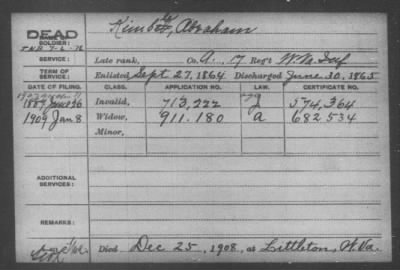 DEAD
NAME OF SOLDIER: Kimble, Abraham
SERVICE: Late rank, Co. A. 17 Reg't W. Va. Inf
TERM OF SERVICE: Enlisted Sept 27, 1864 Discharged June 30, 1865
DATE OF FILING. CLASS. APPLICATION NO. LAW. CERTIFICATE NO.
1889 26 Invalid, 713,222 574,364
1909 Jan 8 Widow, 911.180 a 682534
Minor,
ADDITIONAL SERVICES:
REMARKS:
Died Dec 25, 1908, at Littleton, W. Va.